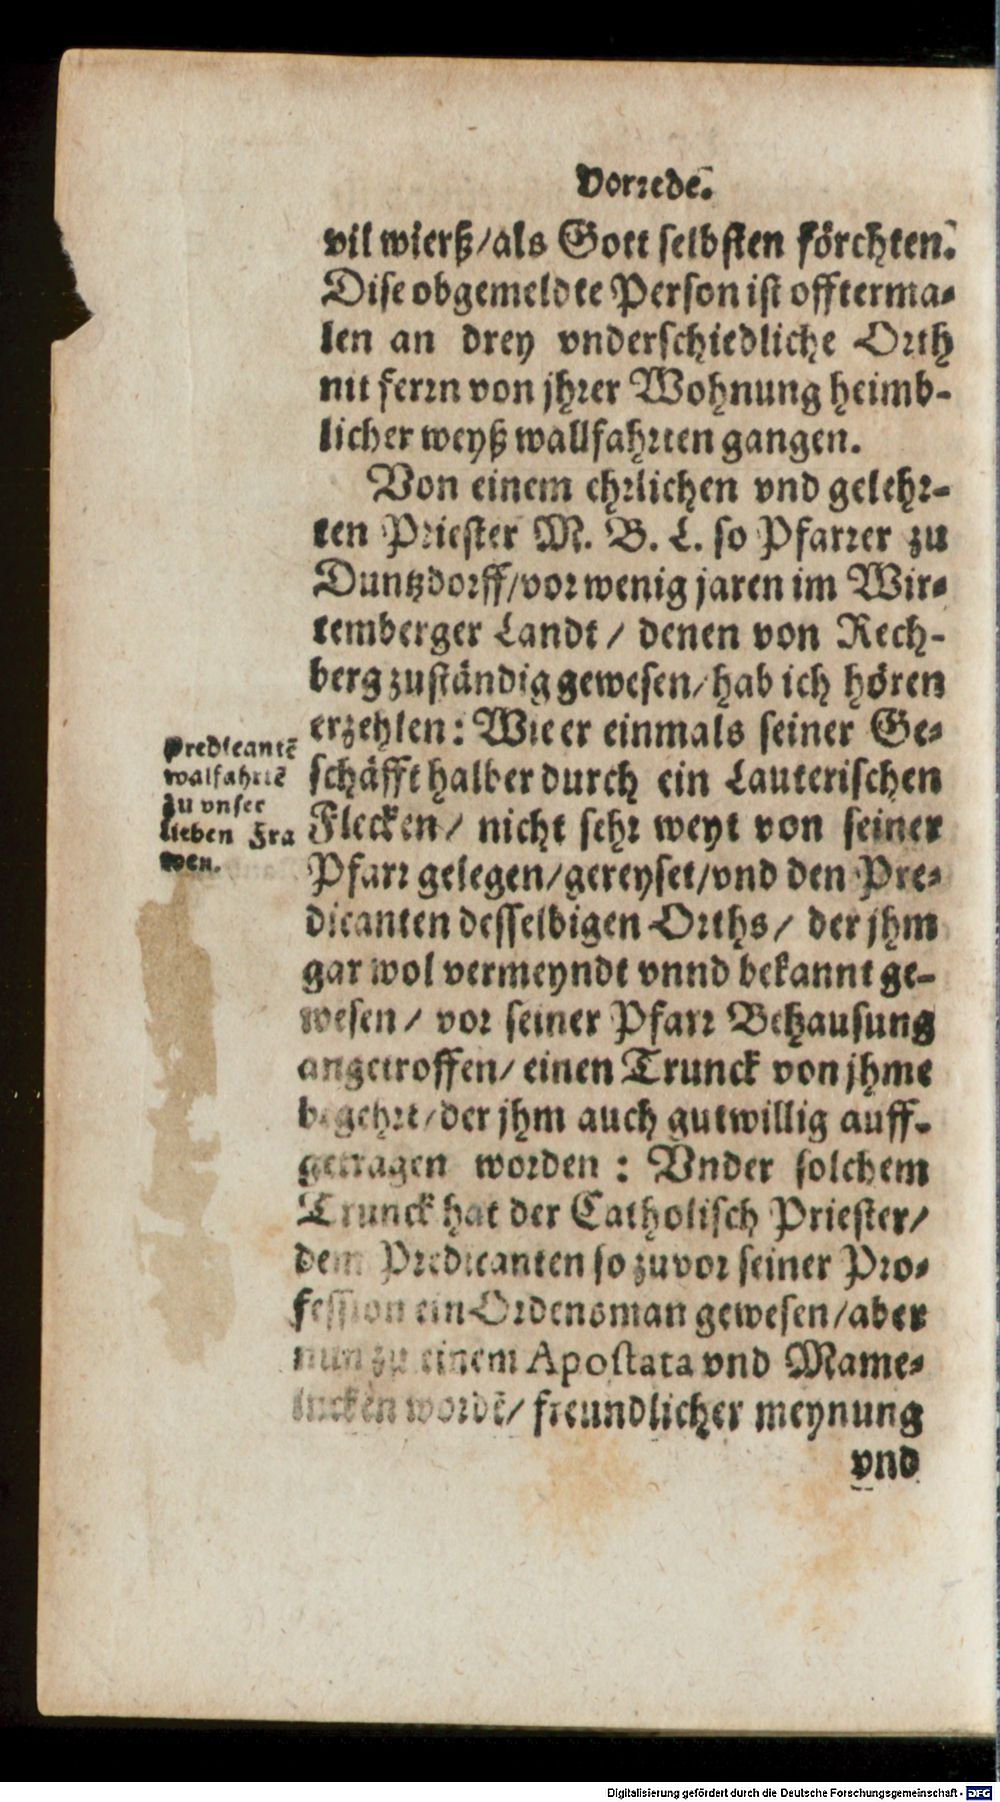 Vorrede.
vil wierß/als Gott selbsten förchten.
Dise obgemeldte Person ist offterma-
len an drey vnderschiedliche Orth
nit ferrn von jhrer Wohnung heimb-
licher weyß wallfahrten gangen.
Von einem ehrlichen vnd gelehr-
ten Priester M. B. L. so Pfarrer zu
Duntzdorff/vor wenig jaren im Wir-
temberger Landt / denen von Rech-
berg zuständig gewesen/hab ich hören
erzehlen: Wie er einmals seiner Ge-
schäfft halber durch ein Lauterischen
Flecken/ nicht sehr weyt von seiner
Pfarr gelegen/gereyset/vnd den Pre-
dicanten desselbigen Orths/ der jhm
gar wol vermeyndt vnnd bekannt ge-
wesen/ vor seiner Pfarr Behausung
angetroffen/ einen Trunck von jhme
begehrt/der jhm auch gutwillig auff-
getragen worden : Vnder solchem
Trunck hat der Catholisch Priester/
dem Predicanten so zuvor seiner Pro-
fession ein Ordensman gewesen/aber
nun zu einem Apostata vnd Mame-
lucken wordē/ freundlicher meynung
vnd
Predicantē
walfahrtē
zu vnser
lieben Fra
wen.
Digitalisierung gefördert durch die Deutsche Forschungsgemeinschaft - DFG